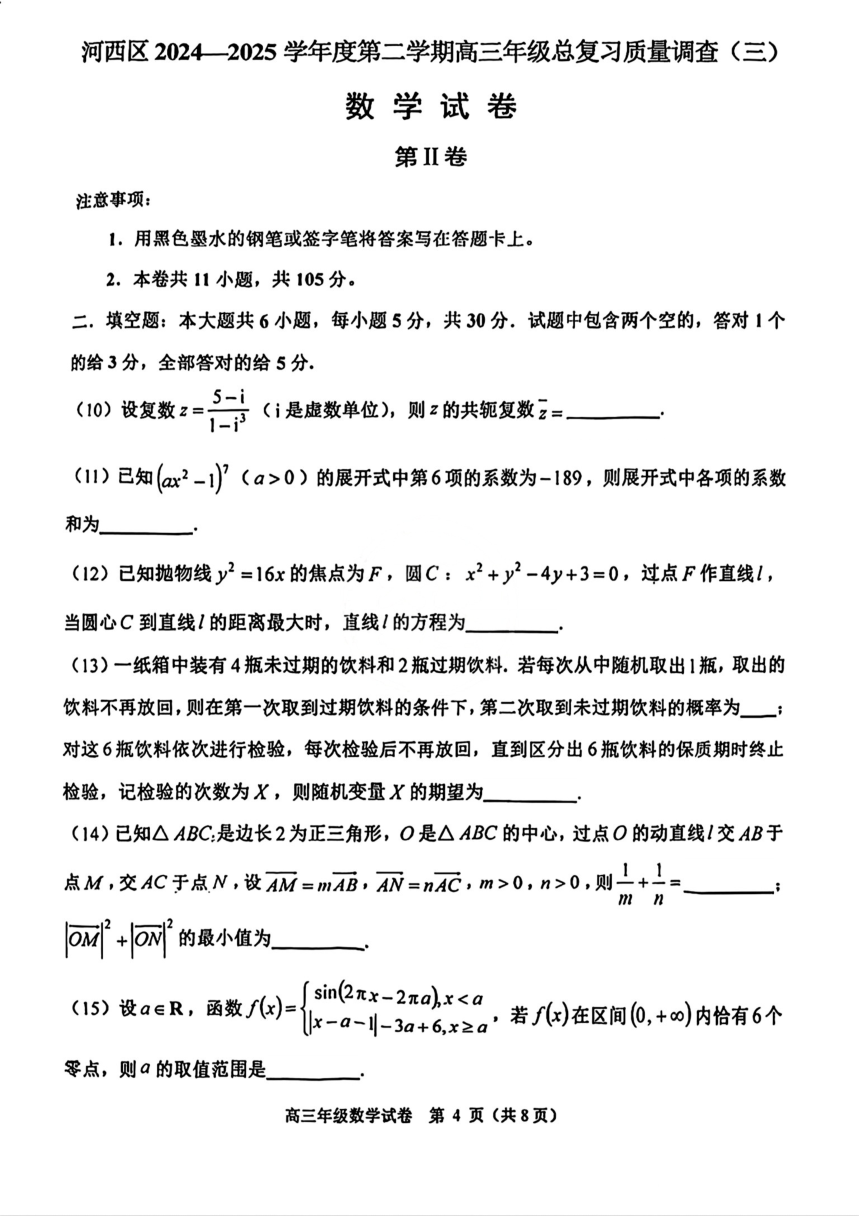 河西区 2024—2025 学年度第二学期高三年级总复习质量调查（三）
数 学 试 卷
第 II 卷
注意事项：
1．用黑色墨水的钢笔或签字笔将答案写在答题卡上。
2．本卷共 11 小题，共 105 分。
二．填空题：本大题共 6 小题，每小题 5 分，共 30 分．试题中包含两个空的，答对 1 个
的给 3 分，全部答对的给 5 分．
（10）设复数 z = (5-i)/(1-i³)（i 是虚数单位），则 z 的共轭复数 z̄ = ________．
（11）已知(ax²-1)⁷（a>0）的展开式中第 6 项的系数为 -189，则展开式中各项的系数
和为________．
（12）已知抛物线 y²=16x 的焦点为 F，圆 C：x²+y²-4y+3=0，过点 F 作直线 l，
当圆心 C 到直线 l 的距离最大时，直线 l 的方程为________．
（13）一纸箱中装有 4 瓶未过期的饮料和 2 瓶过期饮料．若每次从中随机取出 1 瓶，取出的
饮料不再放回，则在第一次取到过期饮料的条件下，第二次取到未过期饮料的概率为___；
对这 6 瓶饮料依次进行检验，每次检验后不再放回，直到区分出 6 瓶饮料的保质期时终止
检验，记检验的次数为 X，则随机变量 X 的期望为________．
（14）已知△ABC 是边长 2 为正三角形，O 是△ABC 的中心，过点 O 的动直线 l 交 AB 于
点 M，交 AC 于点 N，设 AM⃗ = mAB⃗，AN⃗ = nAC⃗，m>0，n>0，则 1/m + 1/n = ________；
|OM⃗|² + |ON⃗|² 的最小值为________．
（15）设 a∈R，函数 f(x) = { sin(2πx-2πa), x<a ; |x-a-1|-3a+6, x≥a ，若 f(x) 在区间 (0,+∞) 内恰有 6 个
零点，则 a 的取值范围是________．
高三年级数学试卷 第 4 页（共 8 页）